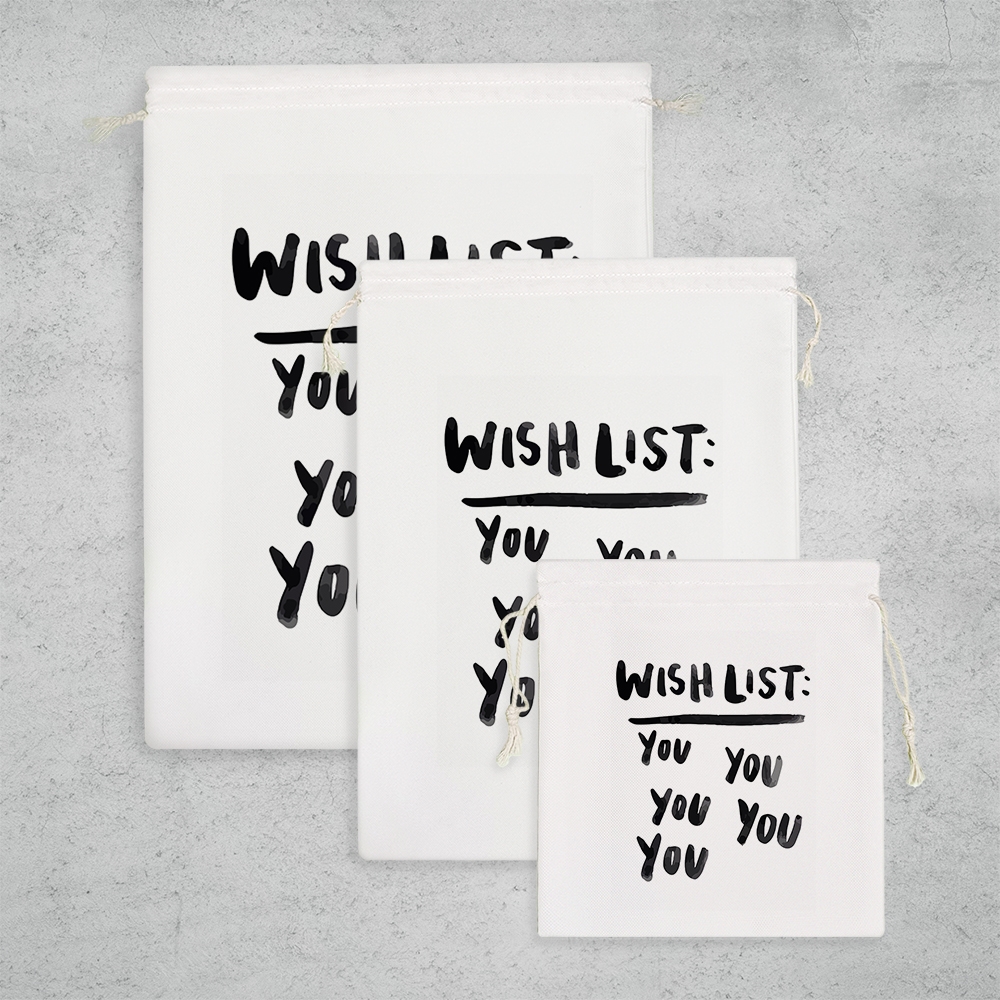 WISH LIST:
YOU
YO
YOU
WISH LIST:
YOU YOU
YO
YO
WISH LIST:
YOU YOU
YOU YOU
YOU